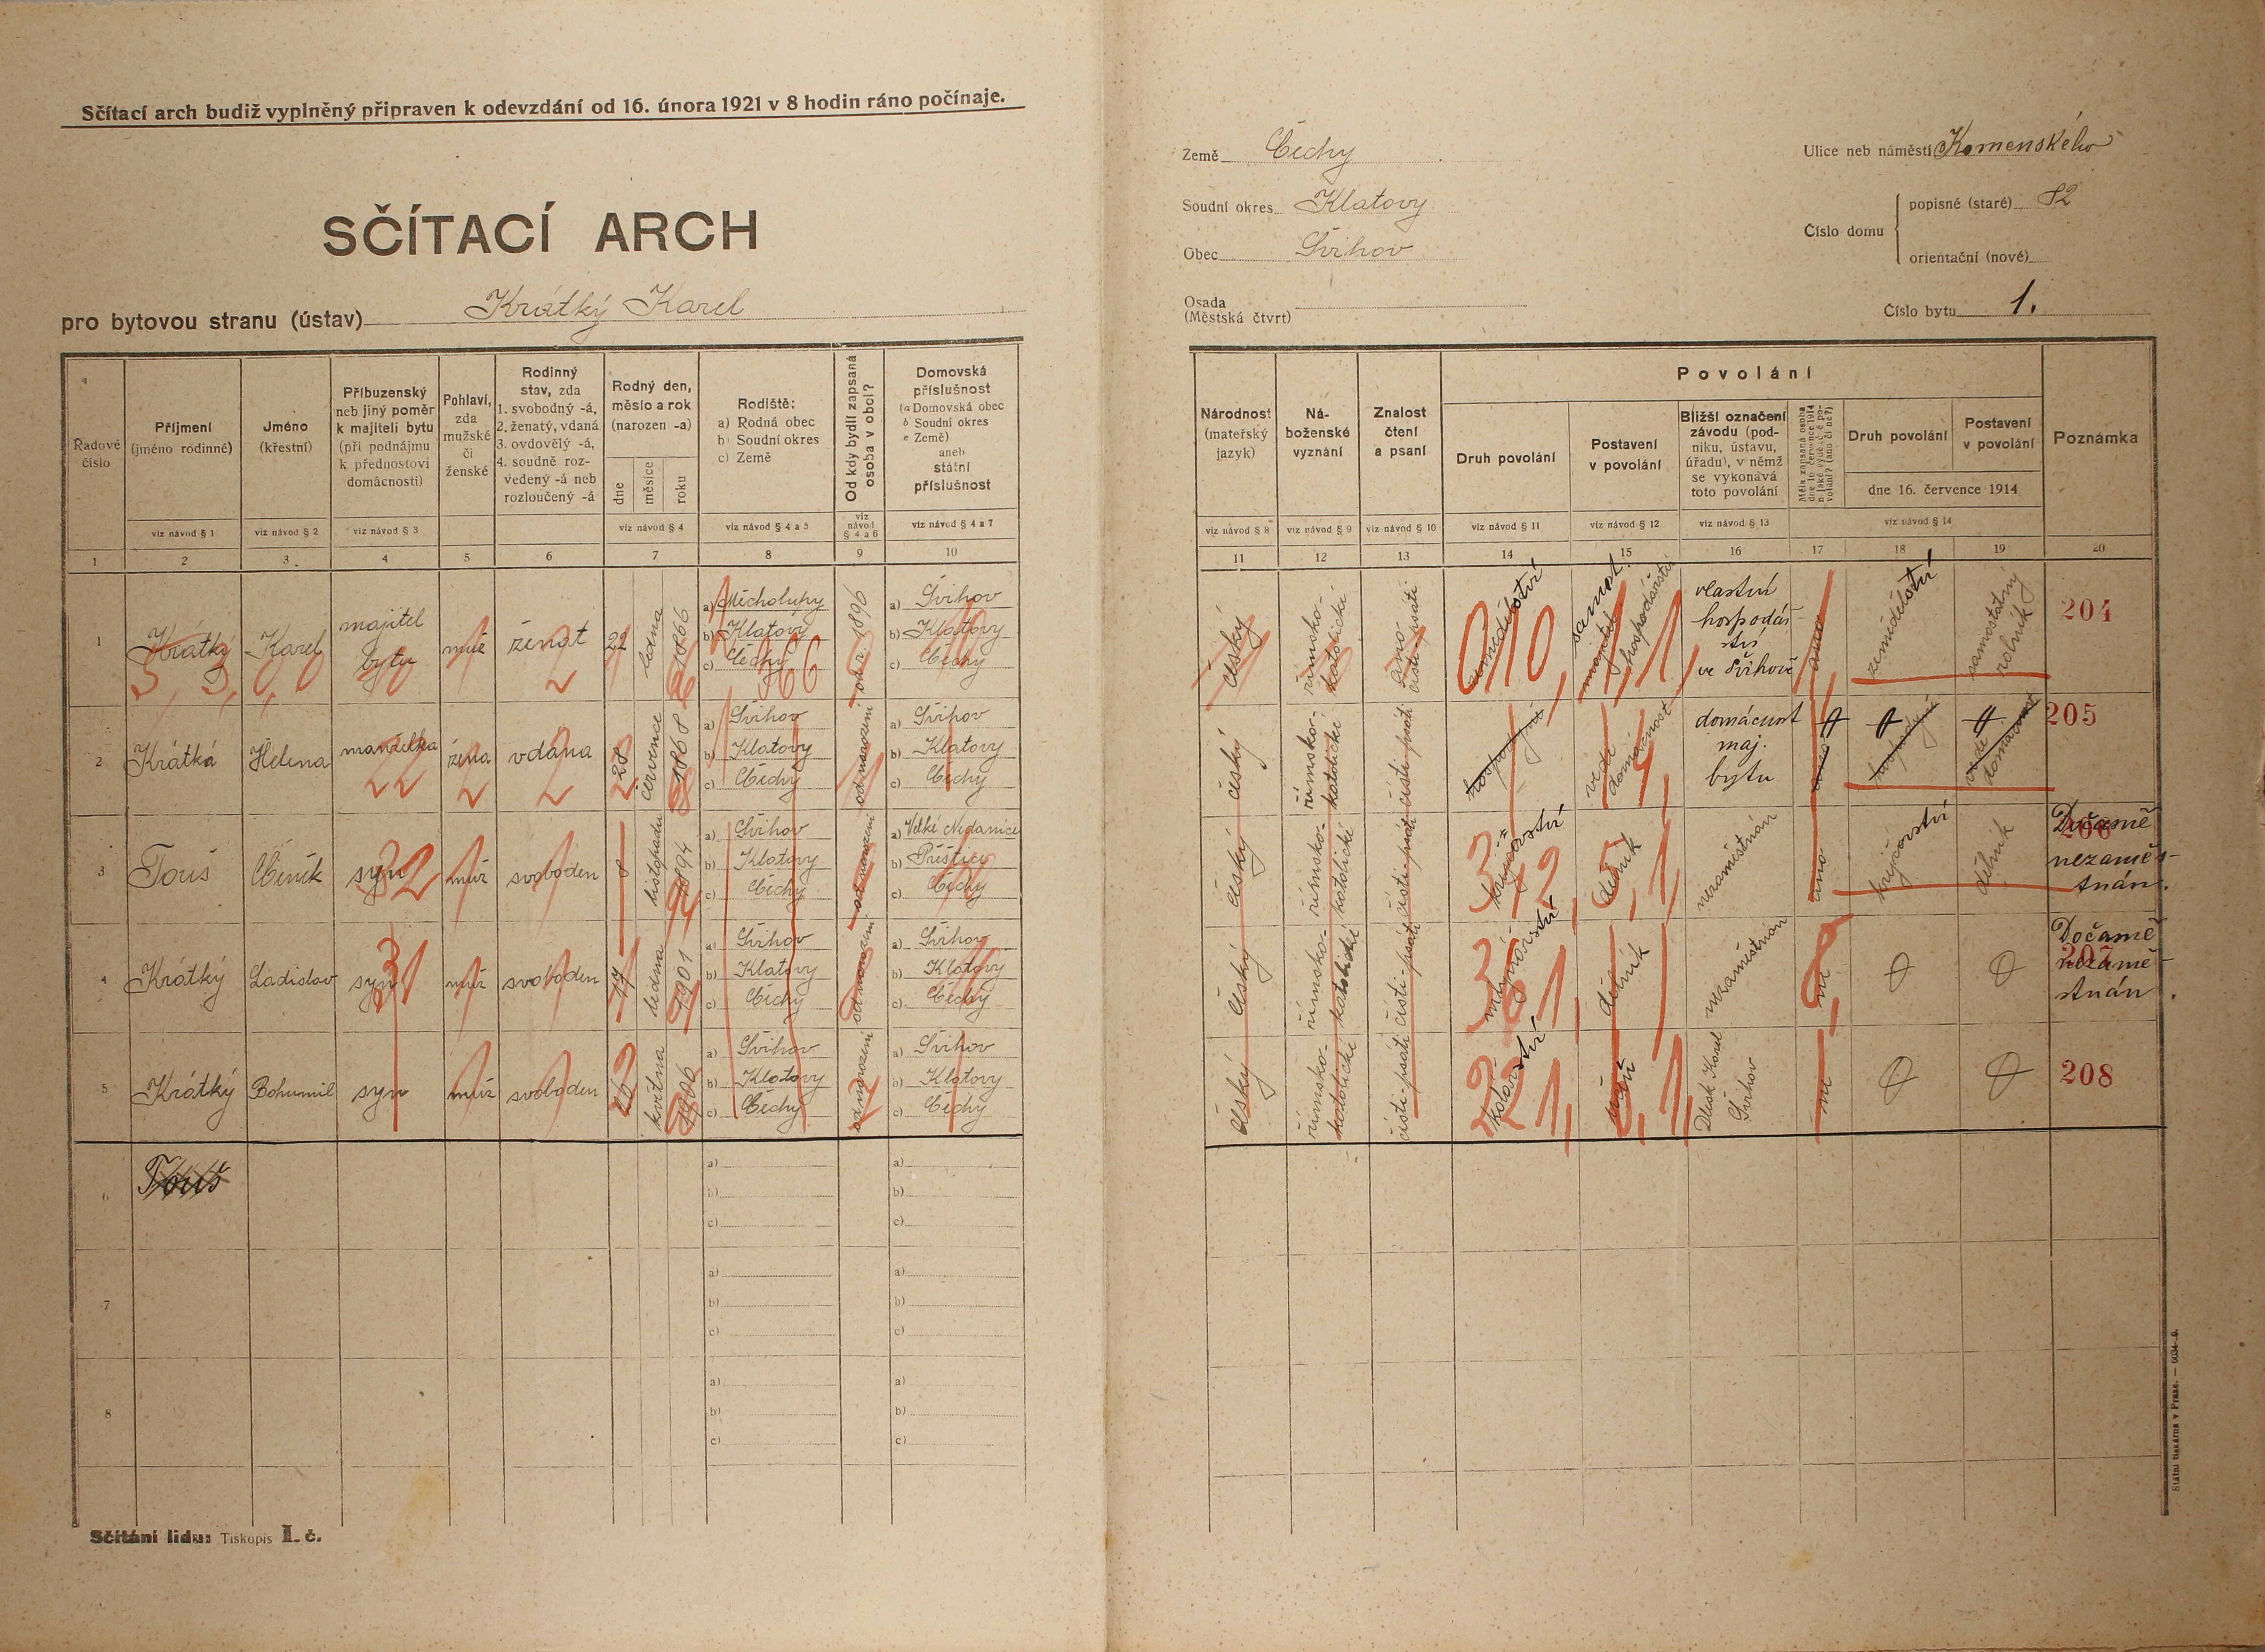 Sčítací arch budiž vyplněný připraven k odevzdání od 16. února 1921 v 8 hodin ráno počínaje.
SČÍTACÍ ARCH
pro bytovou stranu (ústav) Krátký Karel
Země Čechy
Soudní okres Klatovy
Obec Švihov
Osada
(Městská čtvrt)
Ulice neb náměstí Komenského
Číslo domu
popisné (staré) 82
orientační (nové)
Číslo bytu 1.
Řadové číslo
Příjmení (jméno rodinné)
viz návod § 1
Jméno (křestní)
viz návod § 2
Příbuzenský neb jiný poměr k majiteli bytu (při podnájmu k přednostovi domácnosti)
viz návod § 3
Pohlaví, zda mužské či ženské
Rodinný stav, zda 1. svobodný -á, 2. ženatý, vdaná 3. ovdovělý -á, 4. soudně rozvedený -á neb rozloučený -á
Rodný den, měsíc a rok (narozen -a)
dne měsíce roku
viz návod § 4
Rodiště: a) Rodná obec b) Soudní okres c) Země
viz návod § 4 a 5
Od kdy bydlí zapsaná osoba v obci?
viz návod § 4 a 6
Domovská příslušnost (a Domovská obec b Soudní okres c Země) aneb státní příslušnost
viz návod § 4 a 7
Národnost (mateřský jazyk)
viz návod § 8
Náboženské vyznání
viz návod § 9
Znalost čtení a psaní
viz návod § 10
Povolání
Druh povolání
viz návod § 11
Postavení v povolání
viz návod § 12
Bližší označení závodu (podniku, ústavu, úřadu), v němž se vykonává toto povolání
viz návod § 13
Druh povolání
Postavení v povolání
dne 16. července 1914
viz návod § 14
Poznámka
1 2 3 4 5 6 7 8 9 10 11 12 13 14 15 16 17 18 19 20
1 Krátký Karel majitel bytu muž ženat 22 ledna 1866 a) Měcholupy b) Klatovy c) Čechy od r. 1896 a) Švihov b) Klatovy c) Čechy
český římsko-katolické ano čísti-psáti zemědělství samost. majitel hospodářství vlastní hospodářství ve Švihově ano zemědělství samostatný rolník 204
2 Krátká Helena manželka žena vdaná 28 července 1868 a) Švihov b) Klatovy c) Čechy od narození a) Švihov b) Klatovy c) Čechy
český římsko-katolické čísti psáti hospodyně vede domácnost domácnost maj. bytu ano hospodyně vede domácnost 205
3 Touš Čeněk syn muž svoboden 8 listopadu 1894 a) Švihov b) Klatovy c) Čechy od narození a) Velké Nedanice b) Přeštice c) Čechy
český římsko-katolické čísti psáti krejčovství dělník nezaměstnán ano krejčovství dělník 206 Dočasně nezaměstnán.
4 Krátký Ladislav syn muž svoboden 17 ledna 1901 a) Švihov b) Klatovy c) Čechy od narození a) Švihov b) Klatovy c) Čechy
český římsko-katolické čísti psáti mlynářství dělník nezaměstnán ne 0 0 207 Dočasně nezaměstnán.
5 Krátký Bohumil syn muž svoboden 26 května 1906 a) Švihov b) Klatovy c) Čechy od narození a) Švihov b) Klatovy c) Čechy
český římsko-katolické čísti-psáti kolářství učeň Karel Švihov ne 0 0 208
6 Touš a) b) c) a) b) c)
7 a) b) c) a) b) c)
8 a) b) c) a) b) c)
Sčítání lidu: Tiskopis I. č.
Státní tiskárna v Praze.